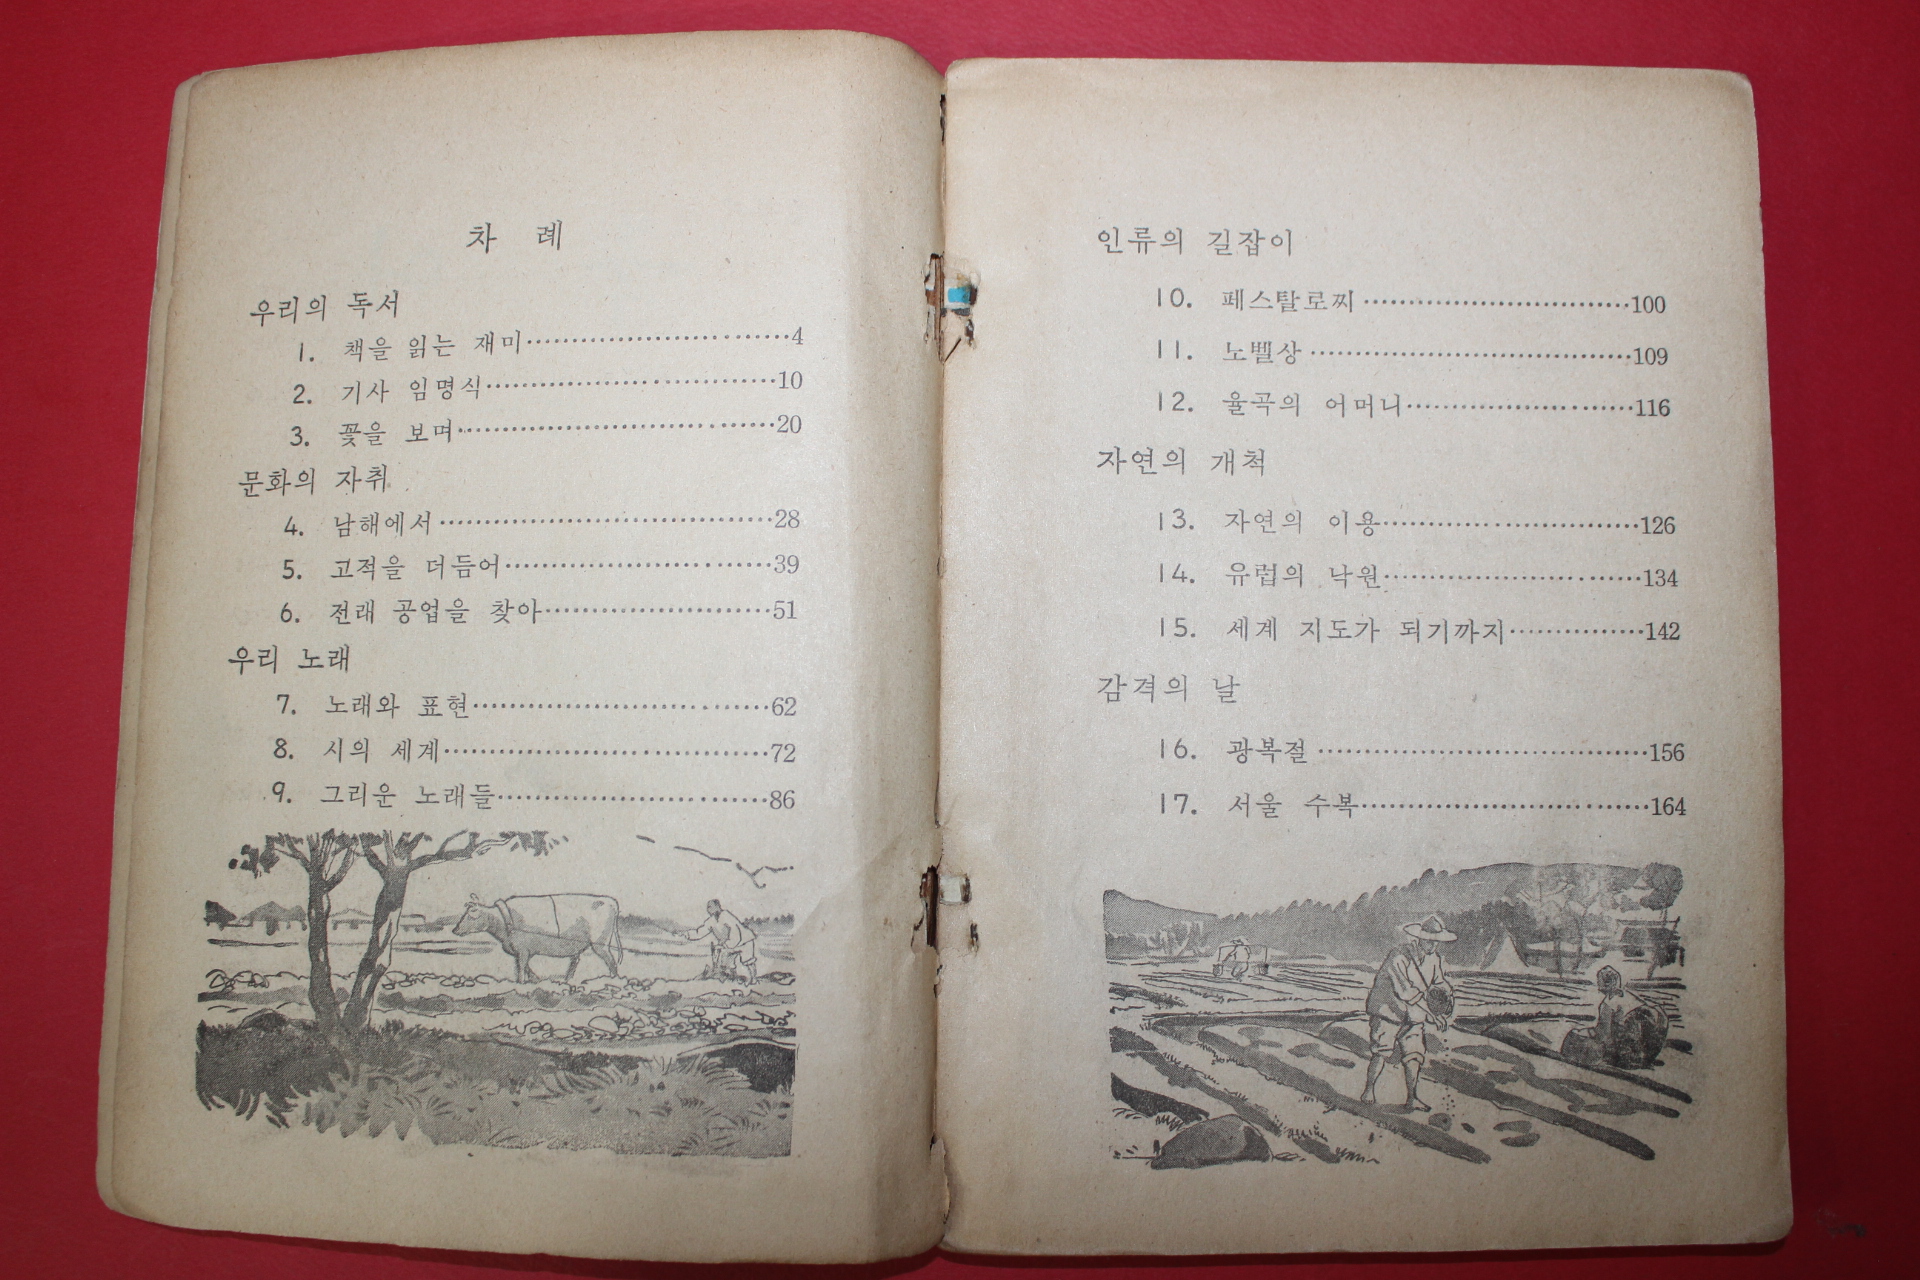 차 례
우리의 독서
1. 책을 읽는 재미……………………………4
2. 기사 임명식……………………………10
3. 꽃을 보며……………………………20
문화의 자취
4. 남해에서……………………………28
5. 고적을 더듬어……………………………39
6. 전래 공업을 찾아……………………………51
우리 노래
7. 노래와 표현……………………………62
8. 시의 세계……………………………72
9. 그리운 노래들……………………………86
인류의 길잡이
10. 페스탈로찌……………………………100
11. 노벨상……………………………109
12. 율곡의 어머니……………………………116
자연의 개척
13. 자연의 이용……………………………126
14. 유럽의 낙원……………………………134
15. 세계 지도가 되기까지……………………………142
감격의 날
16. 광복절……………………………156
17. 서울 수복……………………………164